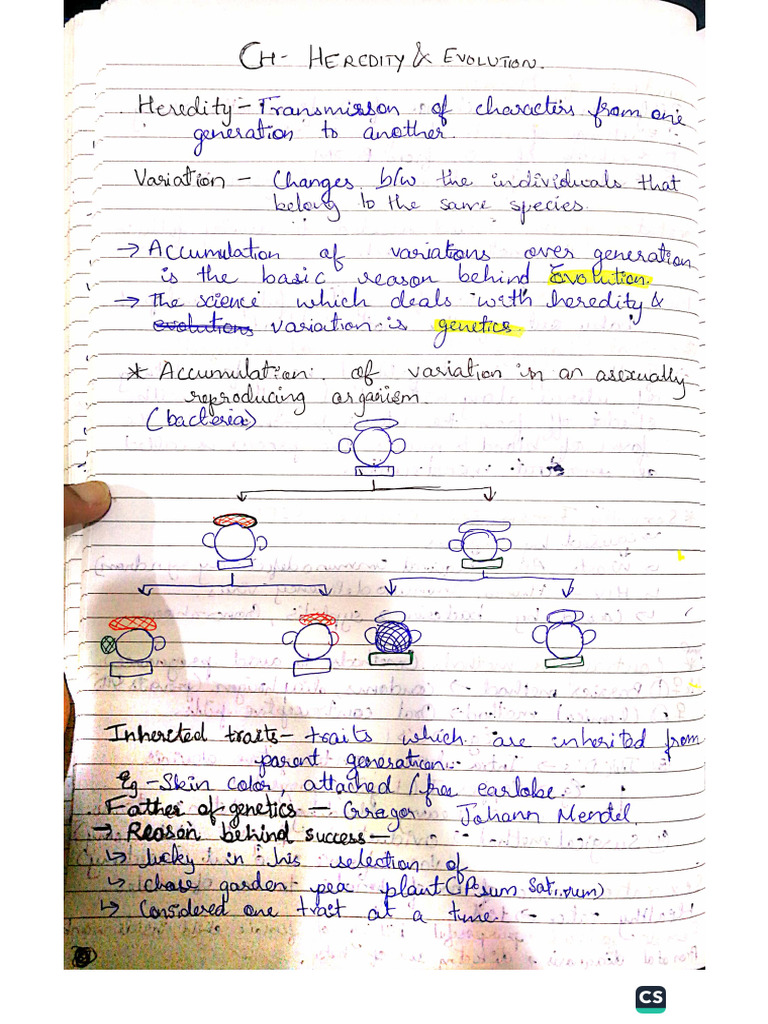 CH- HEREDITY & EVOLUTION.
Heredity - Transmisson of characters from one
generation to another.
Variation - Changes b/w the individuals that
belong to the same species
→ Accumulation of variations over generation
is the basic reason behind Evolution.
→ The science which deals with heredity &
evolutions variation is genetics.
* Accumulation of variation in an asexually
reproducing organism.
(bacteria)
Inherited traits - traits which are inherited from
parent generation.
Eg - Skin color, attached / free earlobe.
Father of genetics - Gregor Johann Mendel.
→ Reason behind success -
↳ lucky in his selection of
↳ chose garden pea plant (Pisum Sativum)
↳ Considered one trait at a time
CS